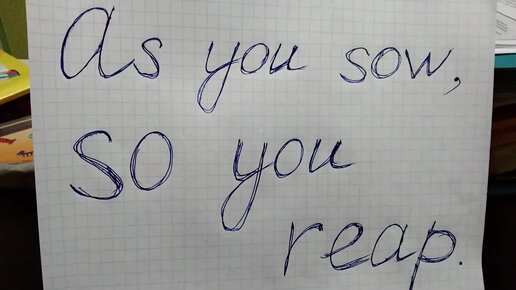 As you sow,
so you
reap.